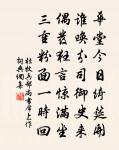 華堂今日綺筵開
誰喚分司御史來
偶發狂言驚滿坐
三重粉面一時回
杜牧兵部尚書席上作
詞典網集